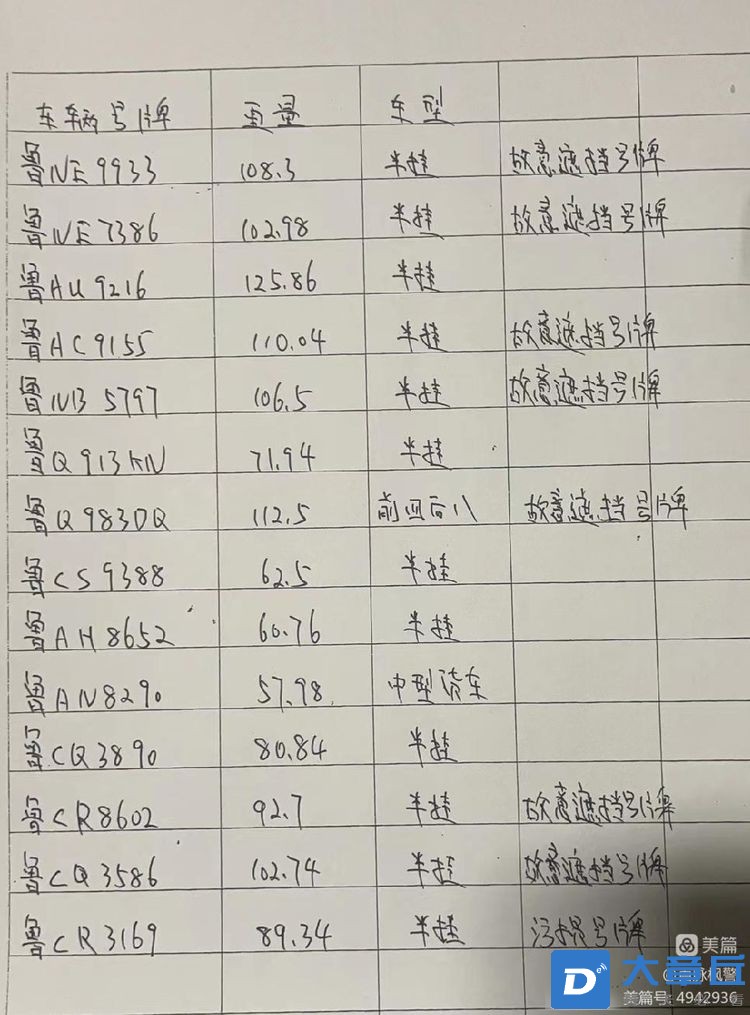 车辆号牌 重量 车型
鲁NE9933 108.3 半挂 故意遮挡号牌
鲁NE7386 102.98 半挂 故意遮挡号牌
鲁AU9216 125.86 半挂
鲁AC9155 110.04 半挂 故意遮挡号牌
鲁NB5797 106.5 半挂 故意遮挡号牌
鲁Q913KN 71.94 半挂
鲁Q983DQ 112.5 前四后八 故意遮挡号牌
鲁CS9388 62.5 半挂
鲁AH8652 60.76 半挂
鲁AN8290 57.98 中型货车
鲁CQ3890 80.84 半挂
鲁CR8602 92.7 半挂 故意遮挡号牌
鲁CQ3586 102.74 半挂 故意遮挡号牌
鲁CR3169 89.34 半挂 污损号牌
美篇
大章丘
美篇号: 4942936